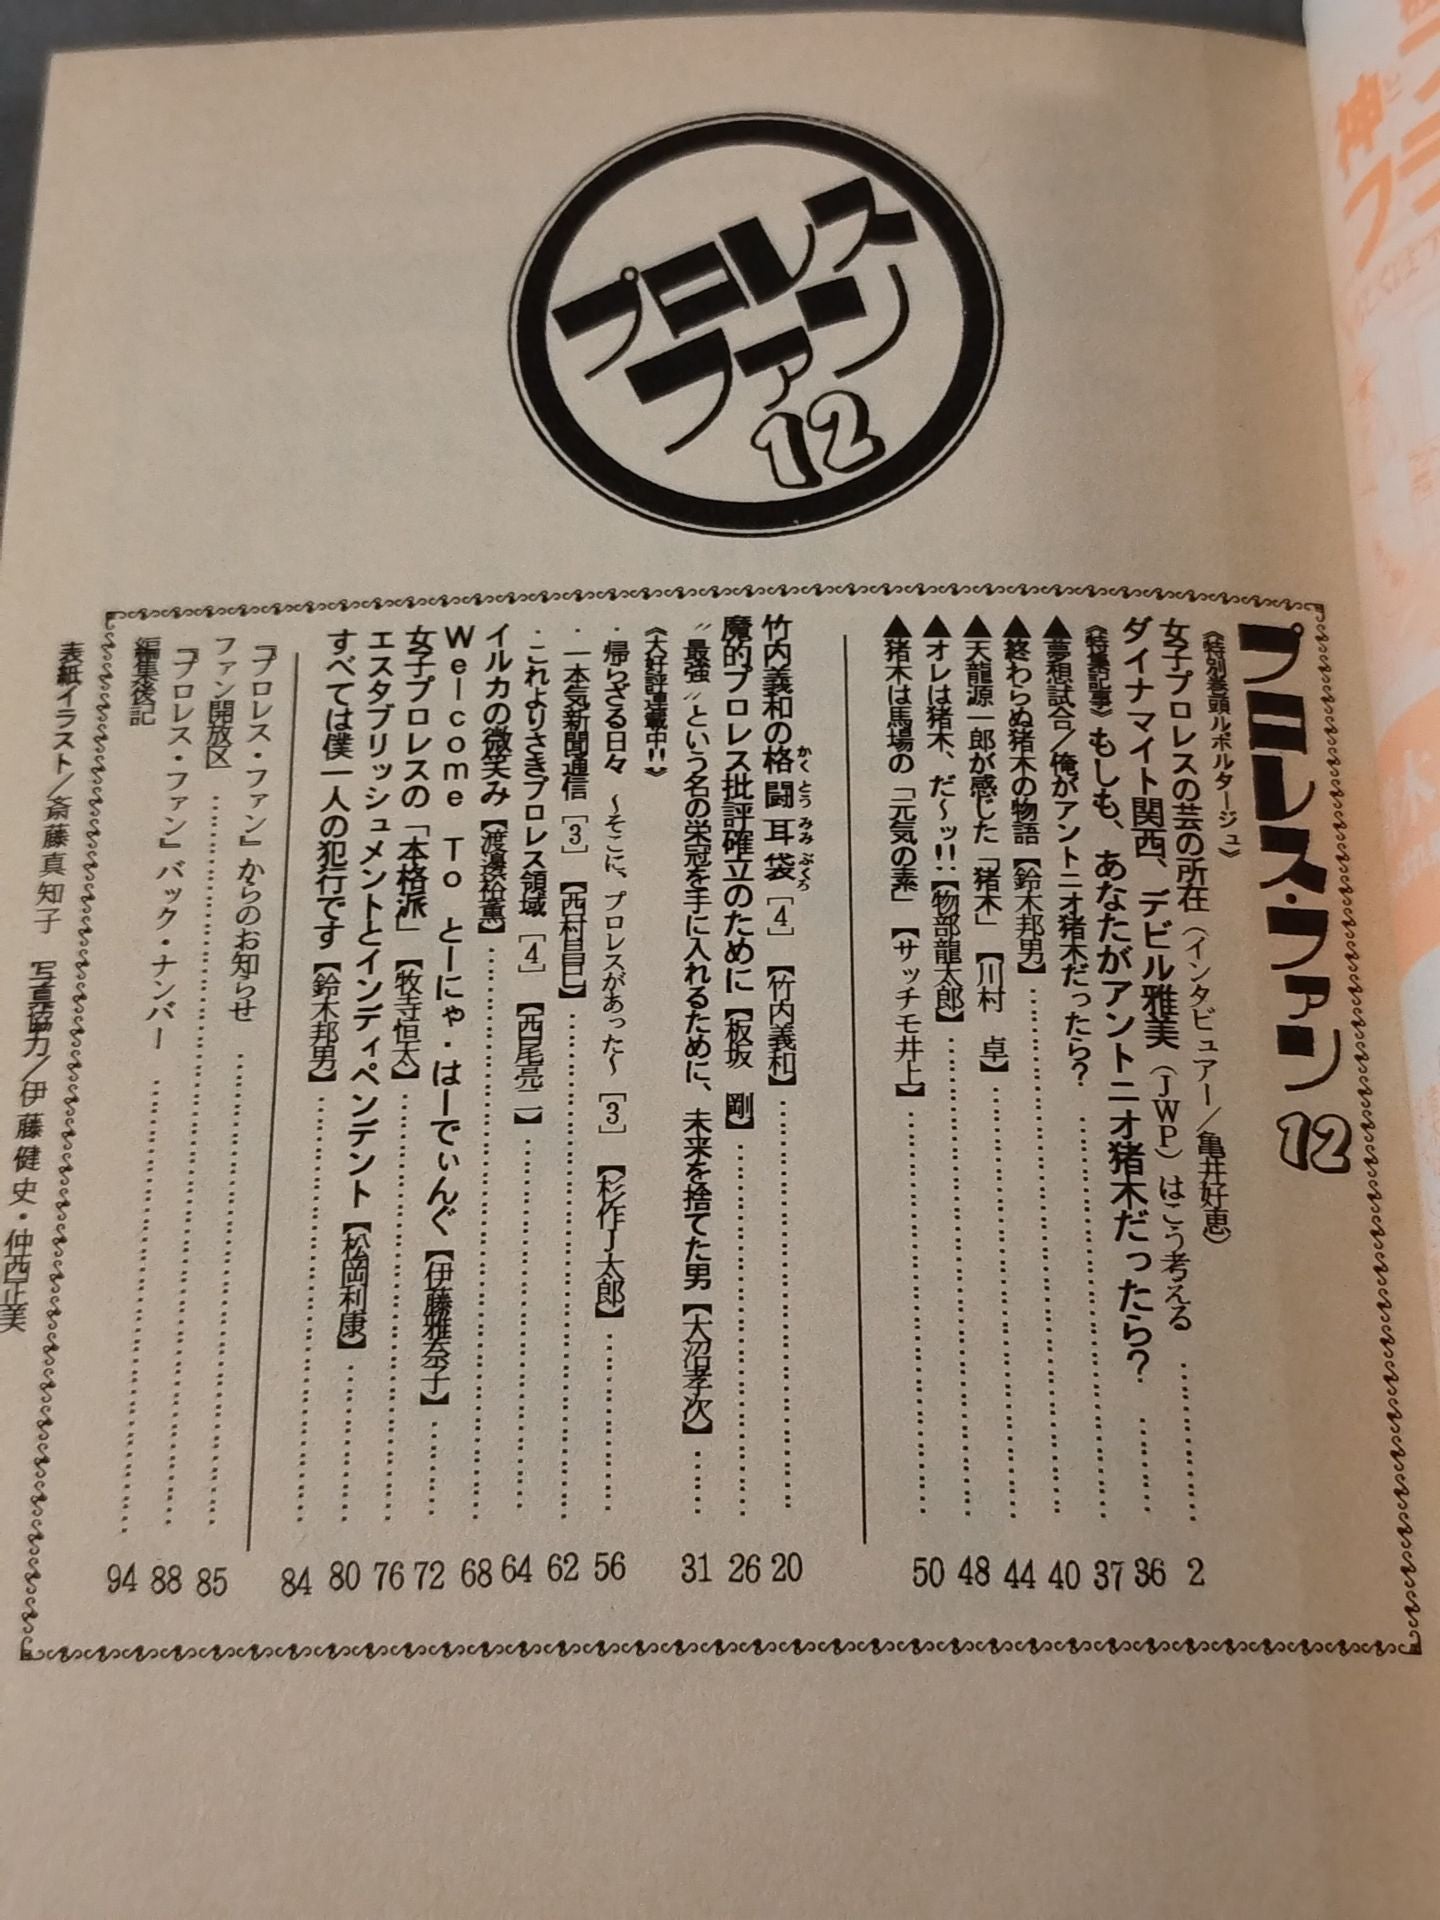 プロレス
ファン
12
プロレス・ファン 12
《特別巻頭ルポルタージュ》
女子プロレスの芸の所在（インタビュアー／亀井好恵）
ダイナマイト関西、デビル雅美（JWP）はこう考える …… 2
《特集記事》もしも、あなたがアントニオ猪木だったら？ …… 36
▲夢想試合／俺がアントニオ猪木だったら？ …… 37
▲終わらぬ猪木の物語【鈴木邦男】 …… 40
▲天龍源一郎が感じた「猪木」【川村　卓】 …… 44
▲オレは猪木、だ〜ッ!!【物部龍太郎】 …… 48
▲猪木は馬場の「元気の素」【サッチモ井上】 …… 50
竹内義和の格闘耳袋［4］【竹内義和】 …… 20
かくとうみみぶくろ
魔的プロレス批評確立のために【板坂　剛】 …… 26
〝最強〟という名の栄冠を手に入れるために、未来を捨てた男【大沼孝次】 …… 31
《大好評連載中!!》
・帰らざる日々　〜そこに、プロレスがあった〜［3］【杉作J太郎】 …… 56
・一本気新聞通信［3］【西村昌巳】 …… 62
・これよりさきプロレス領域［4］【西尾亮二】 …… 64
イルカの微笑み【渡邊裕薫】 …… 68
Welcome To とーにゃ・はーでぃんぐ【伊藤雅奈子】 …… 72
女子プロレスの「本格派」【牧寺恒太】 …… 76
エスタブリッシュメントとインディペンデント【松岡利康】 …… 80
すべては僕一人の犯行です【鈴木邦男】 …… 84
『プロレス・ファン』からのお知らせ ……
ファン開放区 …… 85
『プロレス・ファン』バック・ナンバー …… 88
編集後記 …… 94
表紙イラスト／斎藤真知子　写真協力／伊藤健史・仲西正美